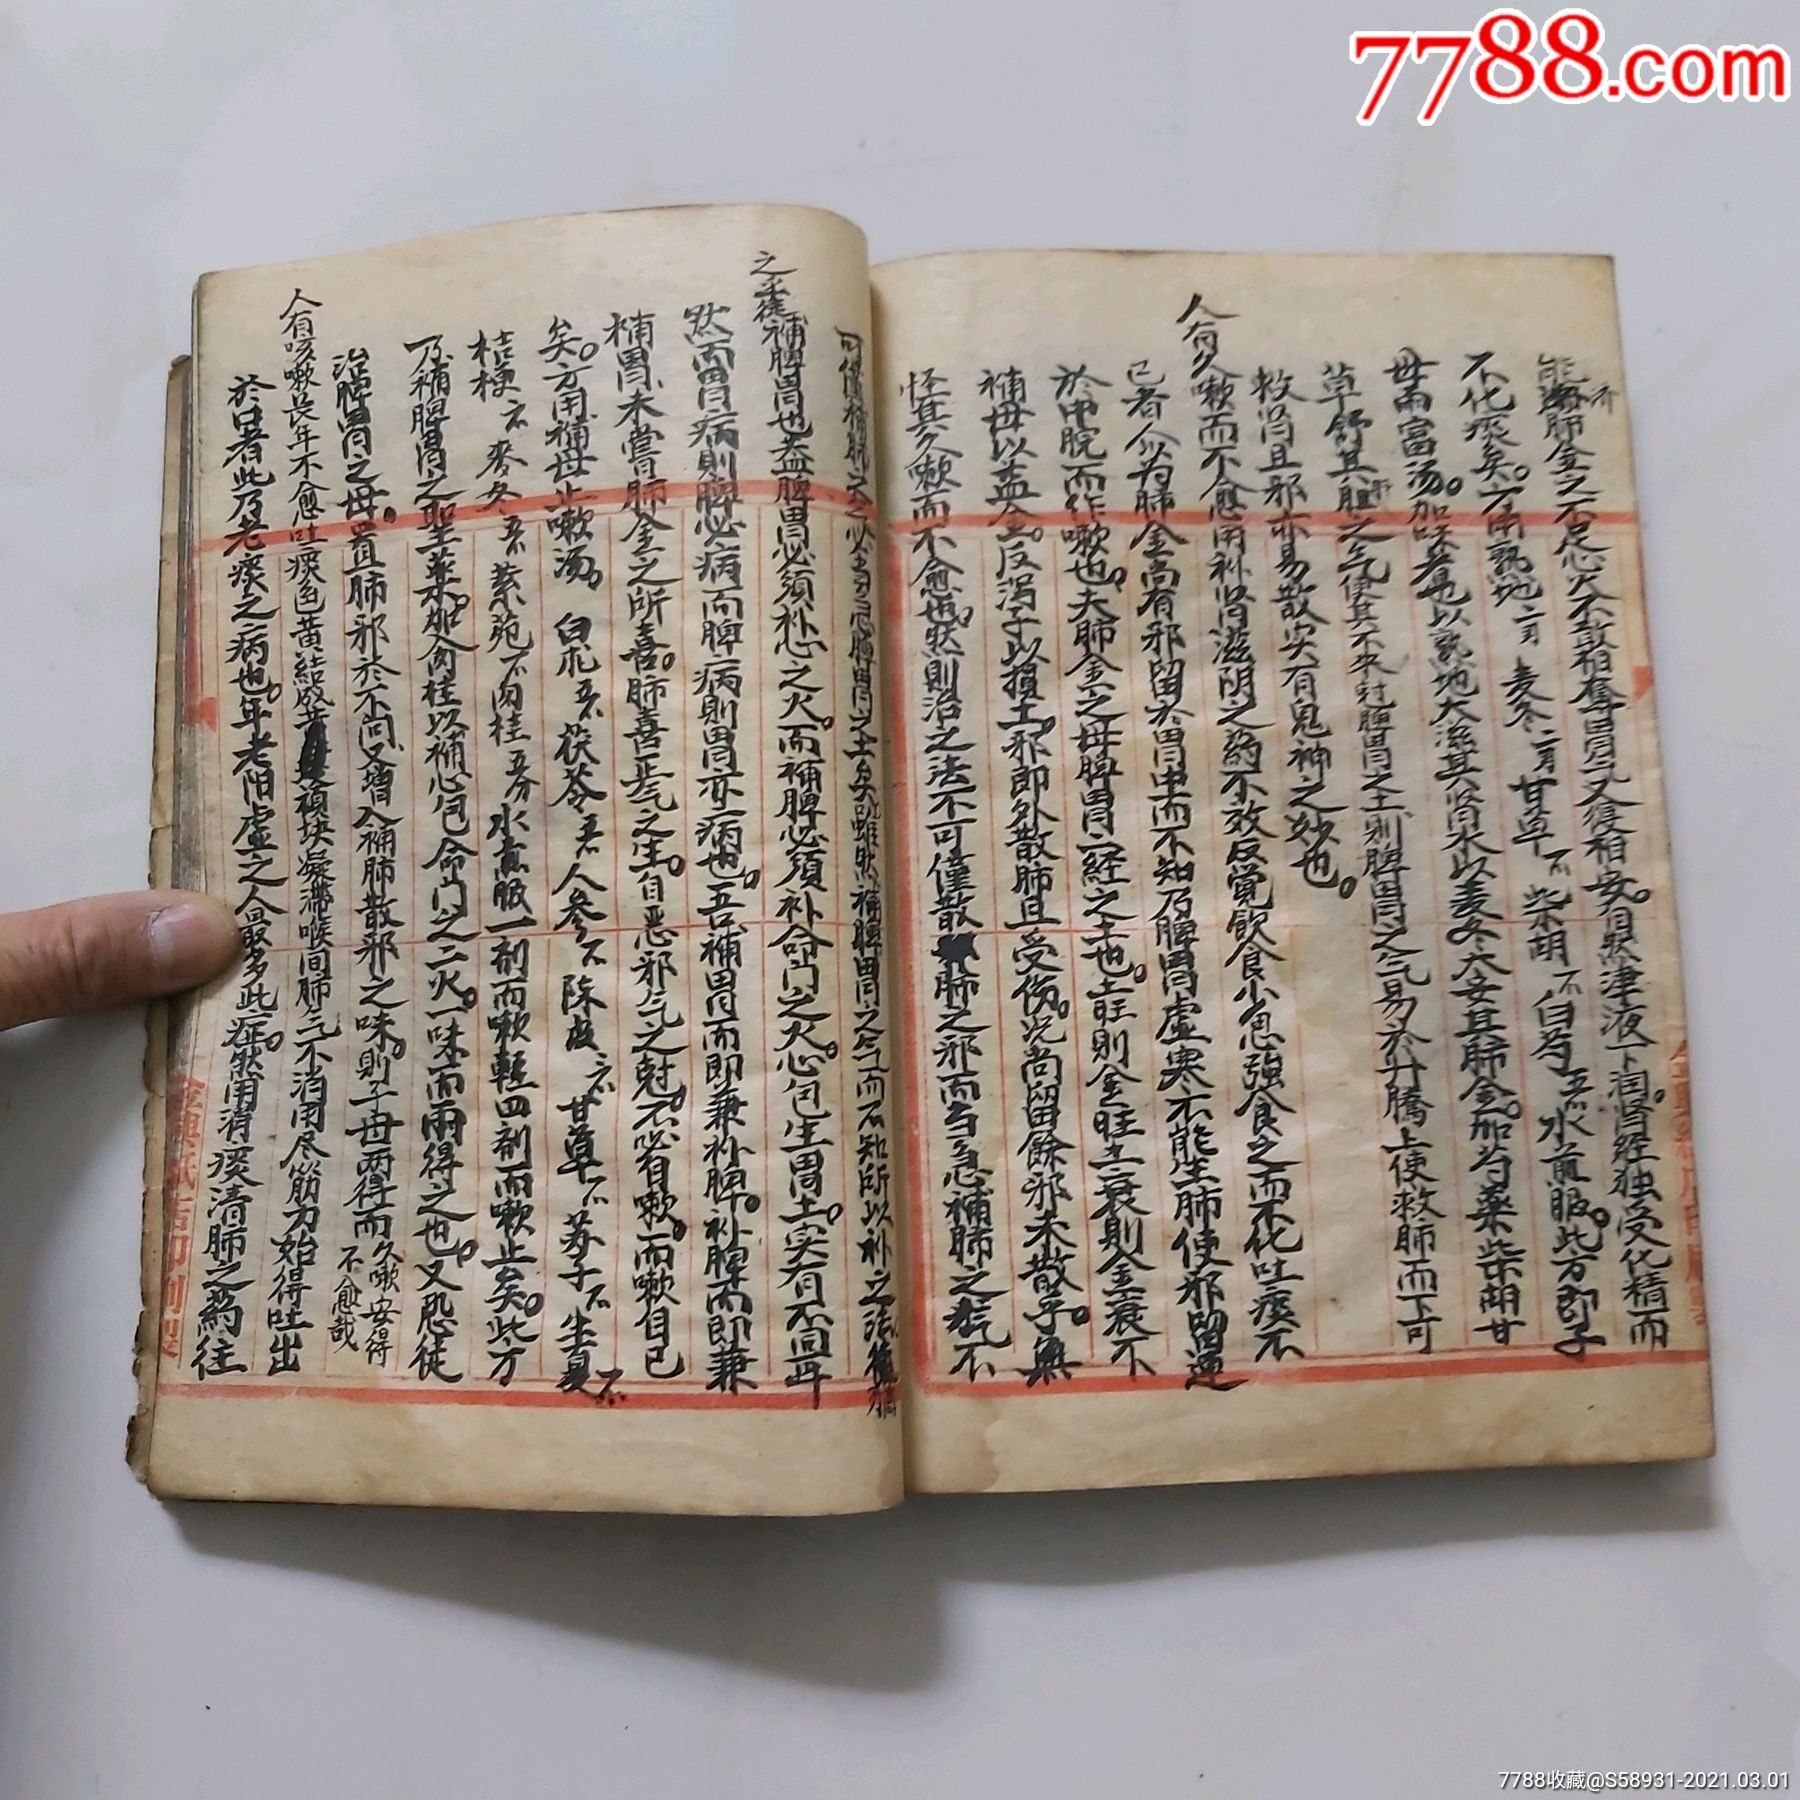 7788.com
能濟肺金之不足心火不敢相奪胃气又得相安自然津液下润肾经独受化精而
不化痰矣。方用熟地二两 麦冬二两 甘草 柴胡 白芍 水煎服。此方即子
母两富汤。加味者也以熟地大滋其肾水以麦冬大安其肺金。加芍薬柴胡甘
草舒其肝胆之气使其不来尅脾胃之土則脾胃之气易於升騰上使救肺而下可
救肾且邪亦易散实有鬼神之妙也。
人有久嗽而不愈用补肾滋阴之药不效反覚飲食少思強食之而不化吐痰不
已者人以为肺金尚有邪留於胃中而不知乃脾胃虛寒不能生肺使邪留連
於中脘而作嗽也。夫肺金之母脾胃二経之土也。土旺則金旺土衰則金衰不
補母以益金。反泻子以損土。邪即外散肺且受伤。况尚留餘邪未散乎。無
怪其久嗽而不愈也。然則治之法不可僅散肺之邪而当急補肺之气不
可僅補肺之气必当
之土矣雖然補脾胃之气而不知所以补之法猶
之乎徒補脾胃也盖脾胃必須补心之火。而補脾必須补命门之火。心包生胃土。实有不同耳
然而胃病則脾必病而脾病則胃亦病也。吾補胃而即兼补脾。补脾而即兼
補胃未嘗肺金之所喜。肺喜正气之生。自惡邪气之尅。不必自嗽。而嗽自已
矣。方用補母止嗽汤。白朮 茯苓 人參 陈皮 甘草 苏子 半夏
桔梗 麥冬 紫苑 肉桂五分 水煎服一剂而嗽輕四剂而嗽止矣。此方
乃補脾胃之聖薬。加肉桂以補心包命门之二火。一味而兩得之也。又恐徒
治脾胃之母。置肺邪於不问又增入補肺散邪之味。則子母两得而久嗽安得不愈哉
人有咳嗽長年不愈吐痰色黃結成頑块凝滞喉间肺气不消用尽筋力始得吐出
於口者此乃老痰之病也。年老阳虛之人最多此症。然用消痰清肺之药往
7788收藏@S58931-2021.03.01